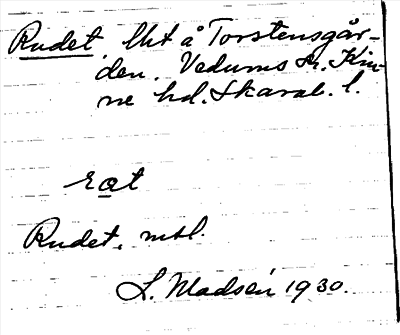 Rudet, lht å Torstensgår-
den. Vedums sn. Kin-
ne hd. Skarab. l.
rat
Rudet. mtl.
L. Madsén 1930.